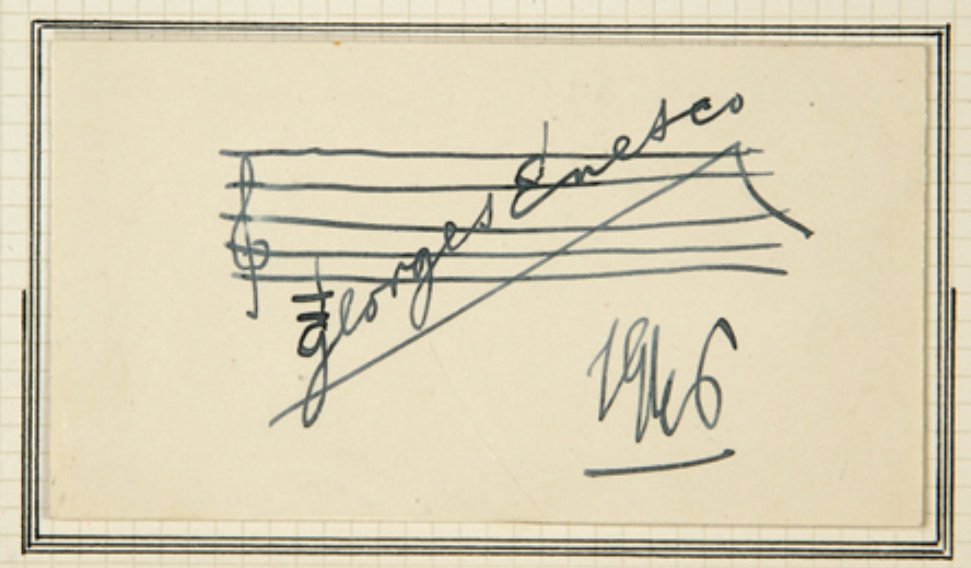 Georges Enesco
1946